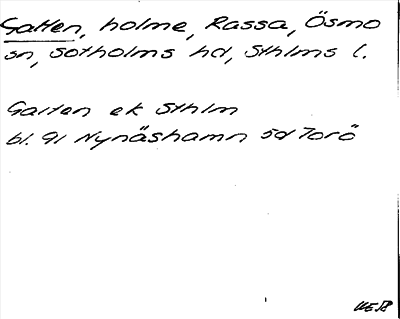 Gatten, holme, Rassa, Ösmo
sn, Sotholms hd, Sthlms l.
Garten ek Sthlm
bl. 91 Nynäshamn 5d Torö